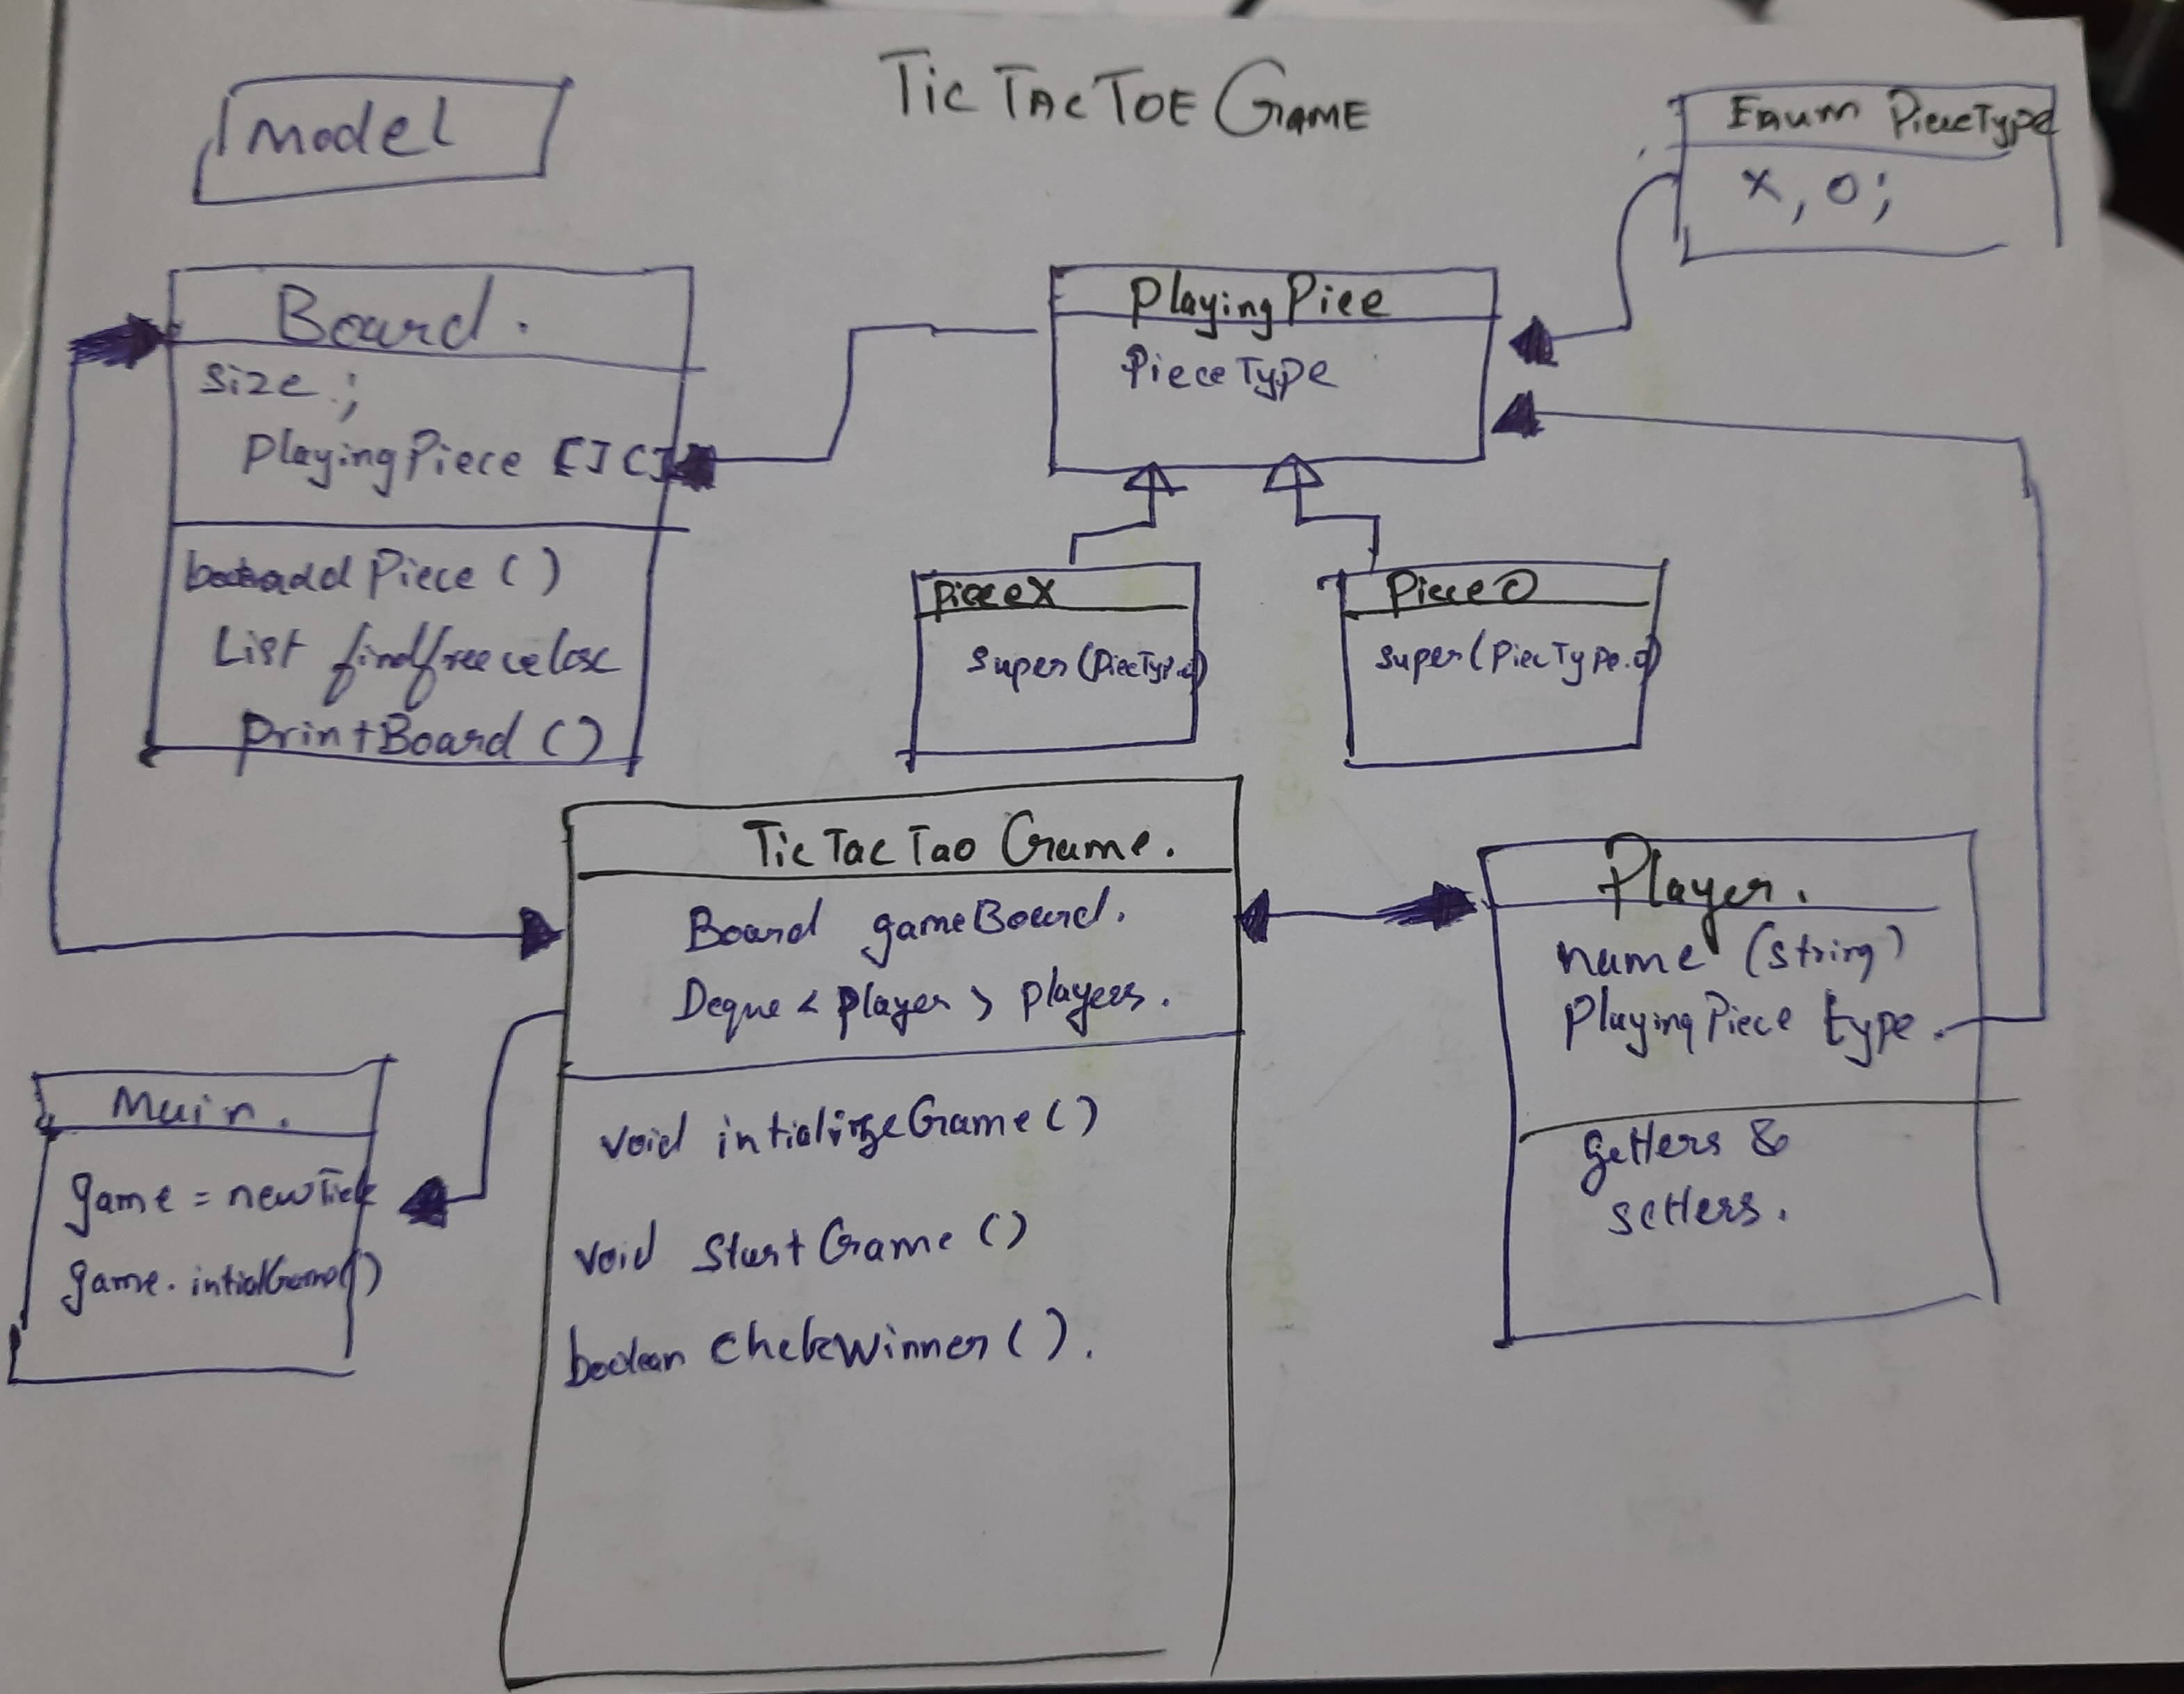 TIC TAC TOE GAME
Model
Enum PieceType
X, O;
Board.
size;
PlayingPiece [] []
addPiece ()
List findfreecelose
printBoard ()
PlayingPiece
PieceType
PieceX
super(PiecType.o)
PieceO
super(PiecType.o)
Tic Tac Tao Game.
Board gameBoard.
Deque < player > players.
void intializeGame ()
void StartGame ()
boolean ChekWinner ().
Player.
name (string)
PlayingPiece type.
getters &
setters.
Main.
game = new Tick
game. intialGame()